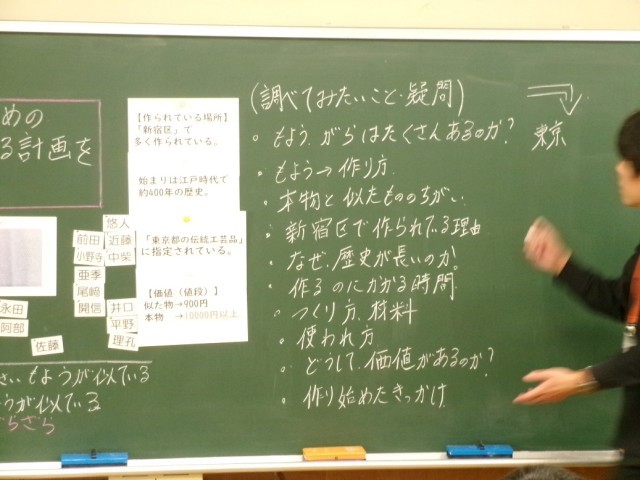 めの
る計画を
【作られている場所】
「新宿区」で
多く作られている。
始まりは江戸時代で
約400年の歴史。
「東京都の伝統工芸品」
に指定されている。
【価値（値段）】
似た物→900円
本物　→10000円以上
悠人
前田
近藤
小野寺
中柴
亜季
尾﨑
開信
井口
永田
平野
阿部
佐藤
理孔
さい もようが似ている
うが似ている
らざら
(調べてみたいこと・疑問)
・もよう、がらはたくさんあるのか?
・もよう→作り方
・本物と似たもののちがい
・新宿区で作られている理由
・なぜ、歴史が長いのか。
・作るのにかかる時間
・つくり方、材料
・使われ方
・どうして、価値があるのか?
・作り始めたきっかけ
東京